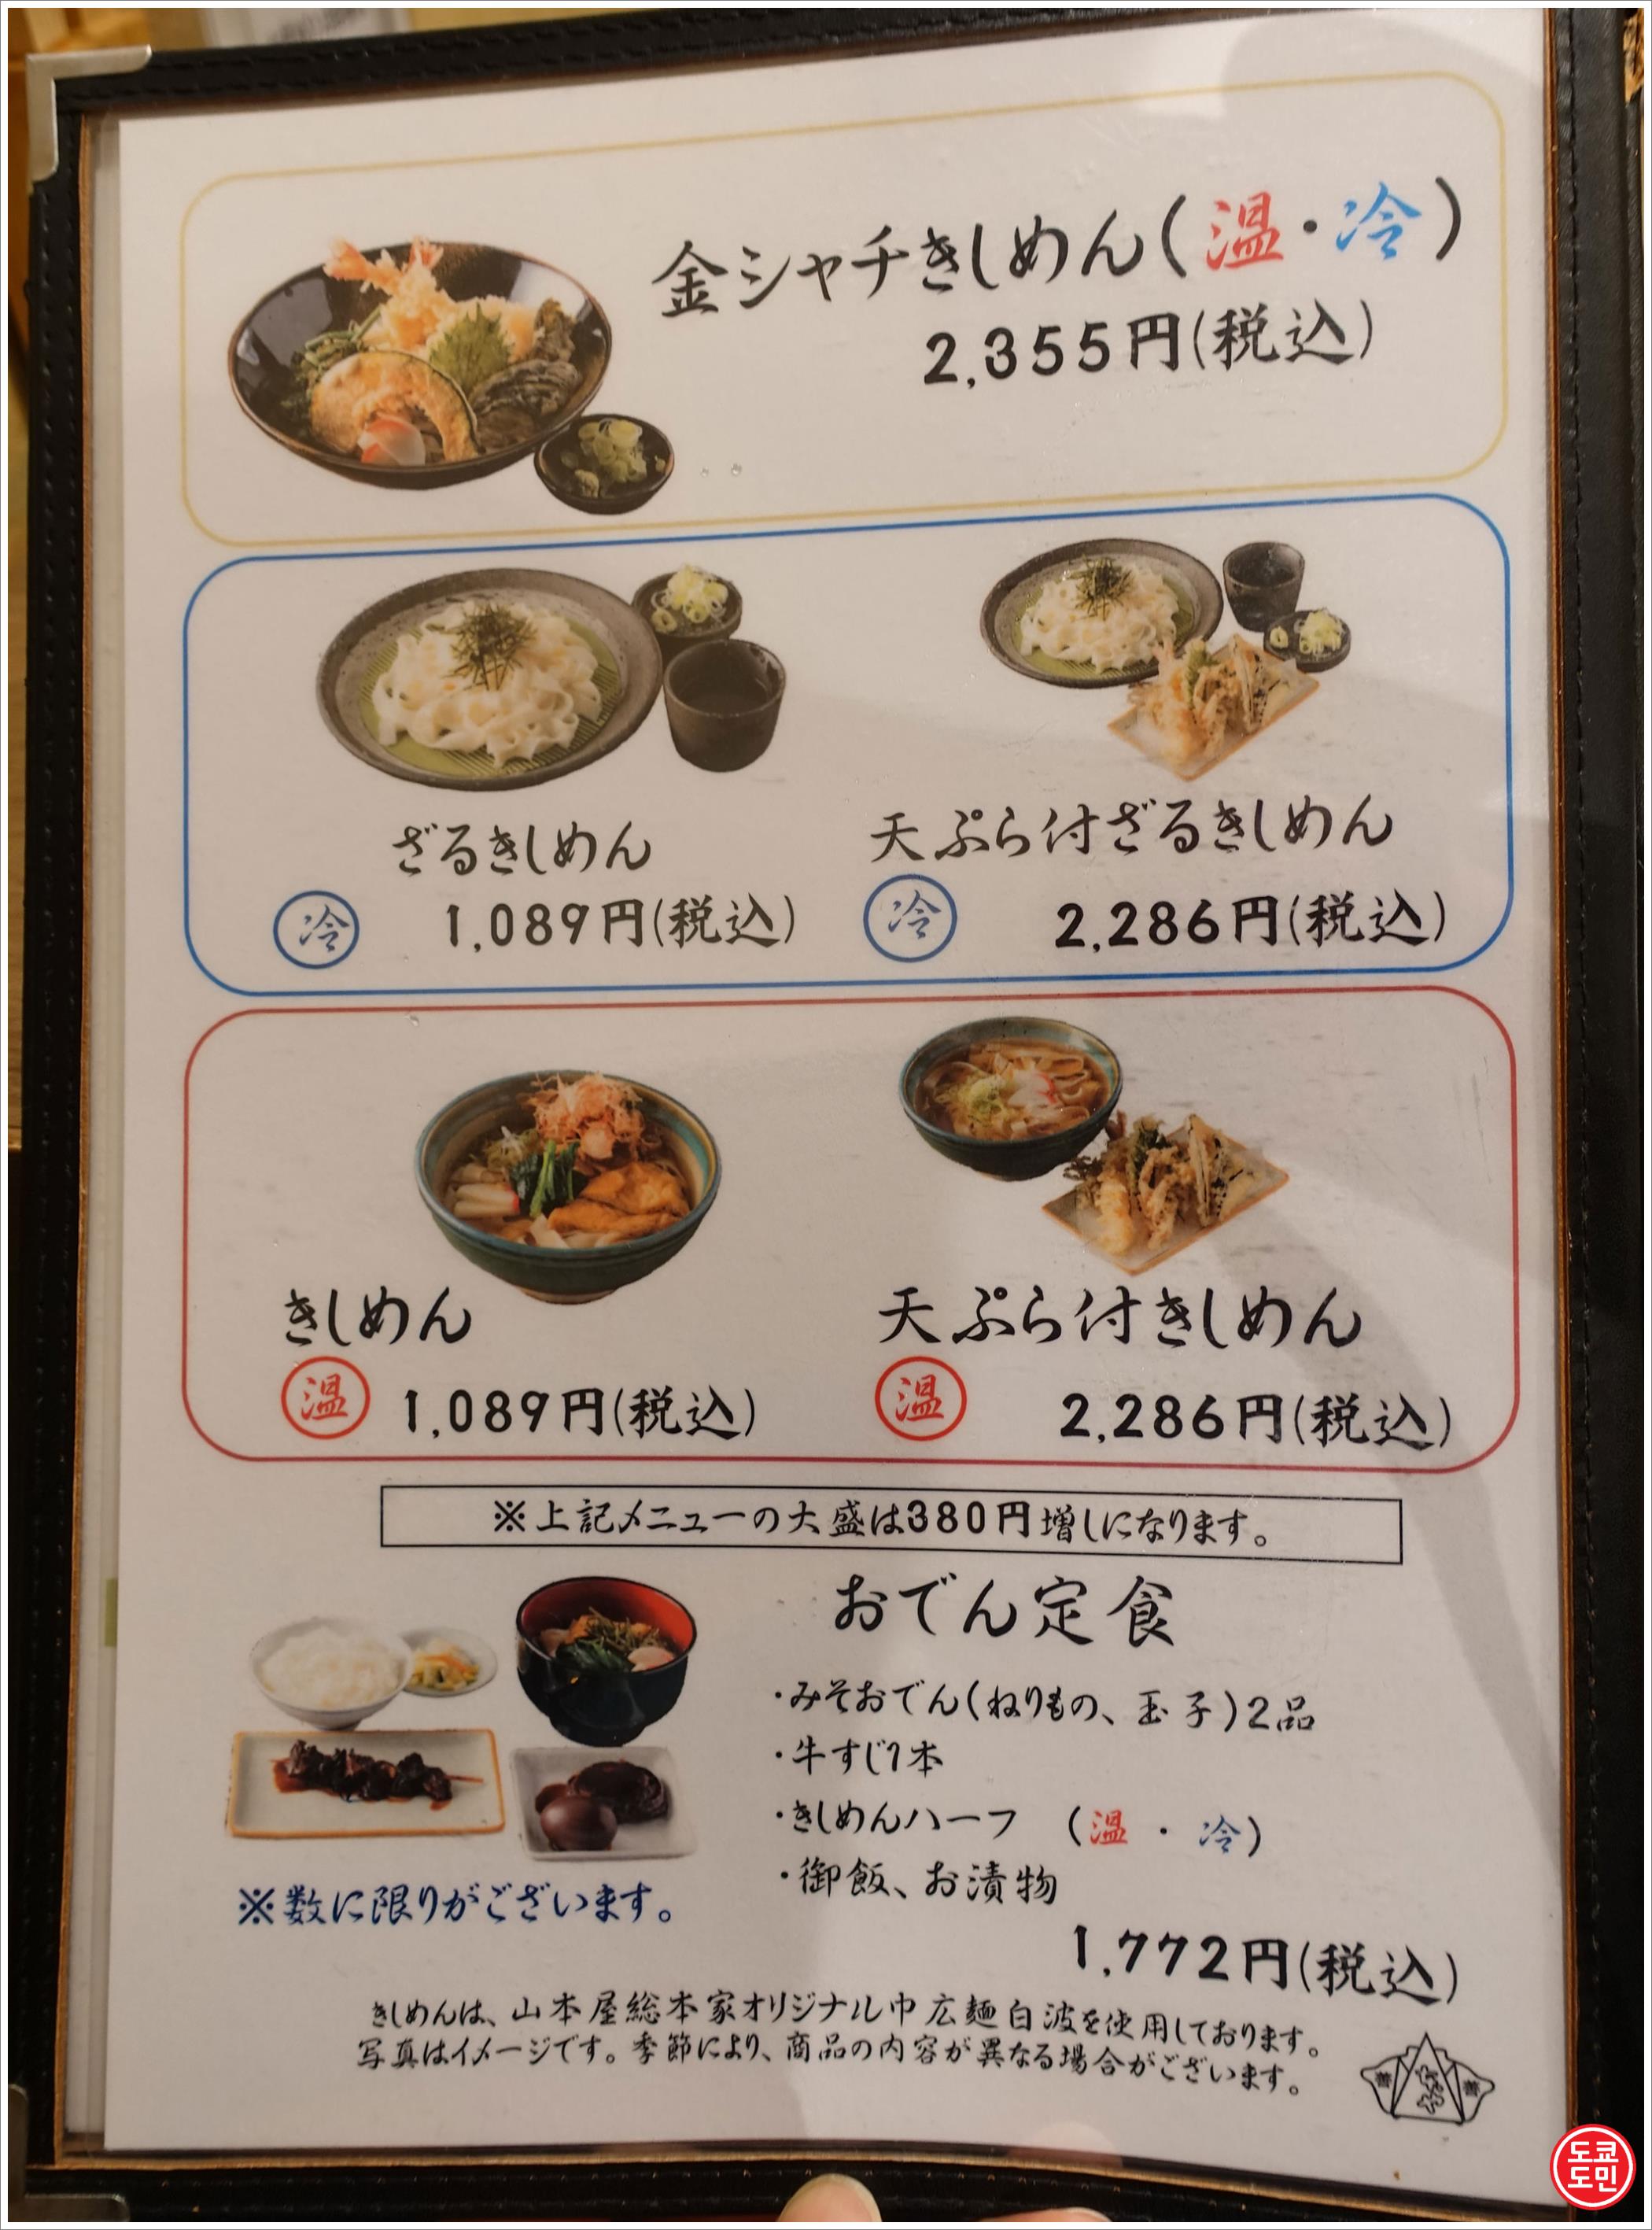 金シャチきしめん(温・冷)
2,355円(税込)
ざるきしめん
冷 1,089円(税込)
天ぷら付ざるきしめん
冷 2,286円(税込)
きしめん
温 1,089円(税込)
天ぷら付きしめん
温 2,286円(税込)
※上記メニューの大盛は380円増しになります。
おでん定食
・みそおでん(ねりもの、玉子)2品
・牛すじ1本
・きしめんハーフ (温・冷)
・御飯、お漬物
※数に限りがございます。
1,772円(税込)
きしめんは、山本屋総本家オリジナル巾広麺白波を使用しております。
写真はイメージです。季節により、商品の内容が異なる場合がございます。
도쿄
도민